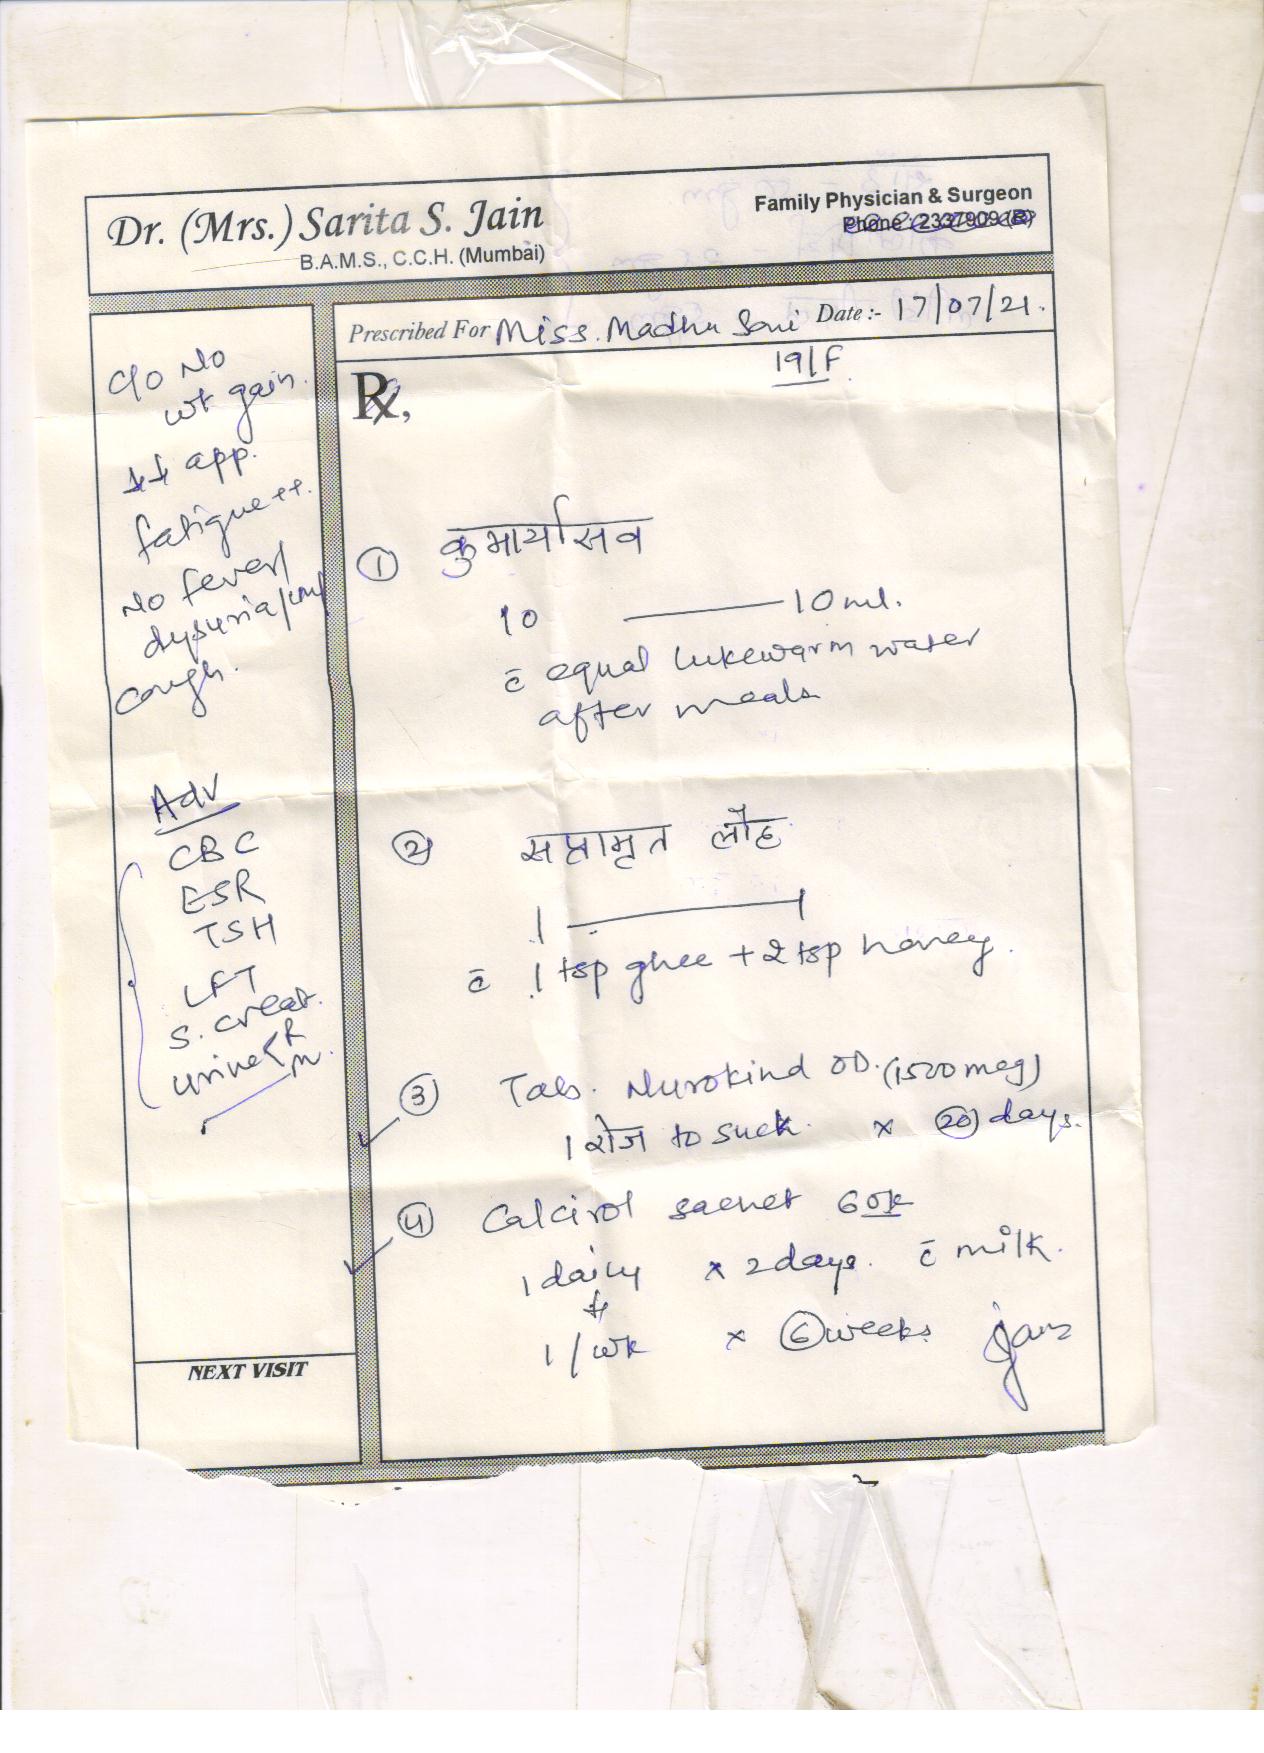 Dr. (Mrs.) Sarita S. Jain
B.A.M.S., C.C.H. (Mumbai)
Family Physician & Surgeon
Phone : 2337909 (R)
Prescribed For Miss. Madhu Soni Date :- 17/07/21.
19/F
C/o No
wt gain.
↓↓ app.
fatigue ++.
No fever/
dysuria/
cough.
Adv
CBC
ESR
TSH
LFT
S. creat.
urine < R
m.
Rx,
① कुमार्यासव
10 — 10 ml.
c̄ equal lukewarm water
after meals
② सप्तामृत लौह
1 — 1
c̄ 1 tsp ghee + 2 tsp honey.
③ Tab. Nurokind OD. (1500 mcg)
1 रोज to suck. x 20 days.
④ Calcirol sachet 60k
1 daily x 2 days. c̄ milk.
1/wk x 6 weeks.
NEXT VISIT